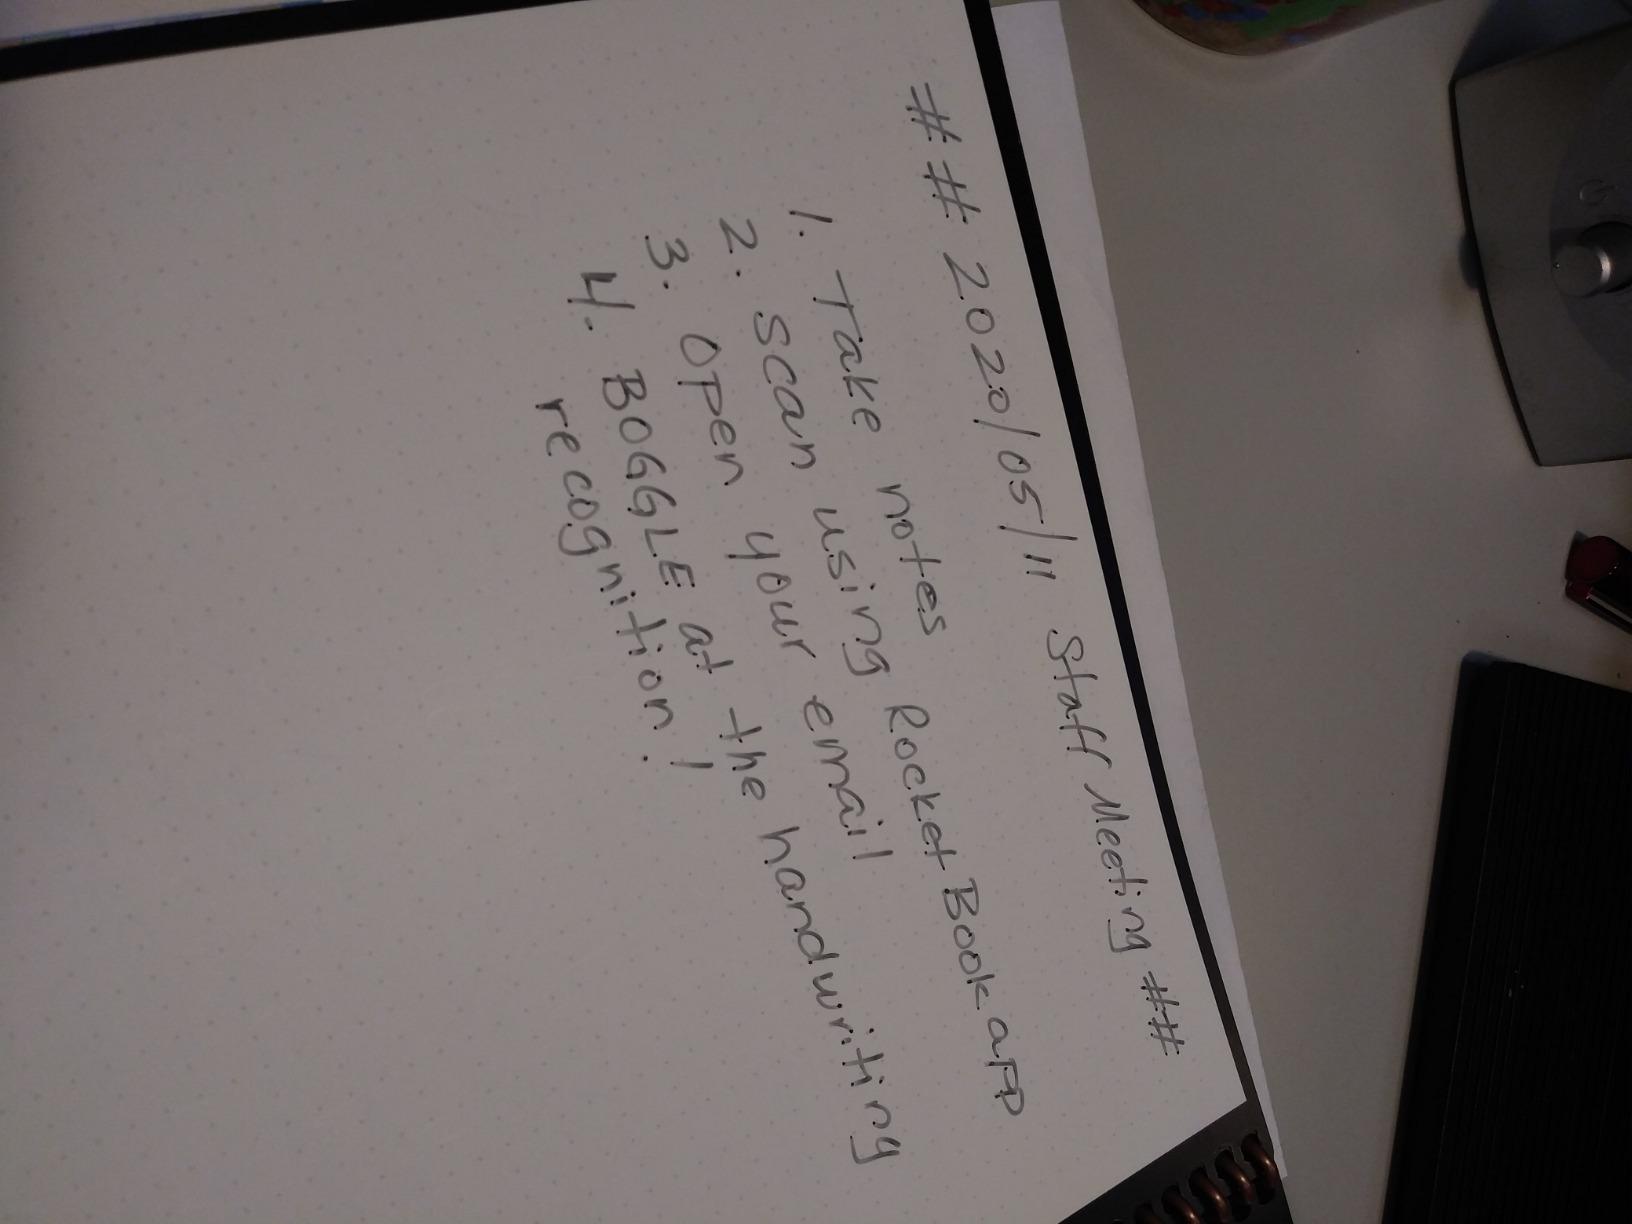 ## 2020/05/11 Staff Meeting ##
1. Take notes
2. Scan using RocketBook app
3. Open your email
4. BOGGLE at the handwriting
recognition!